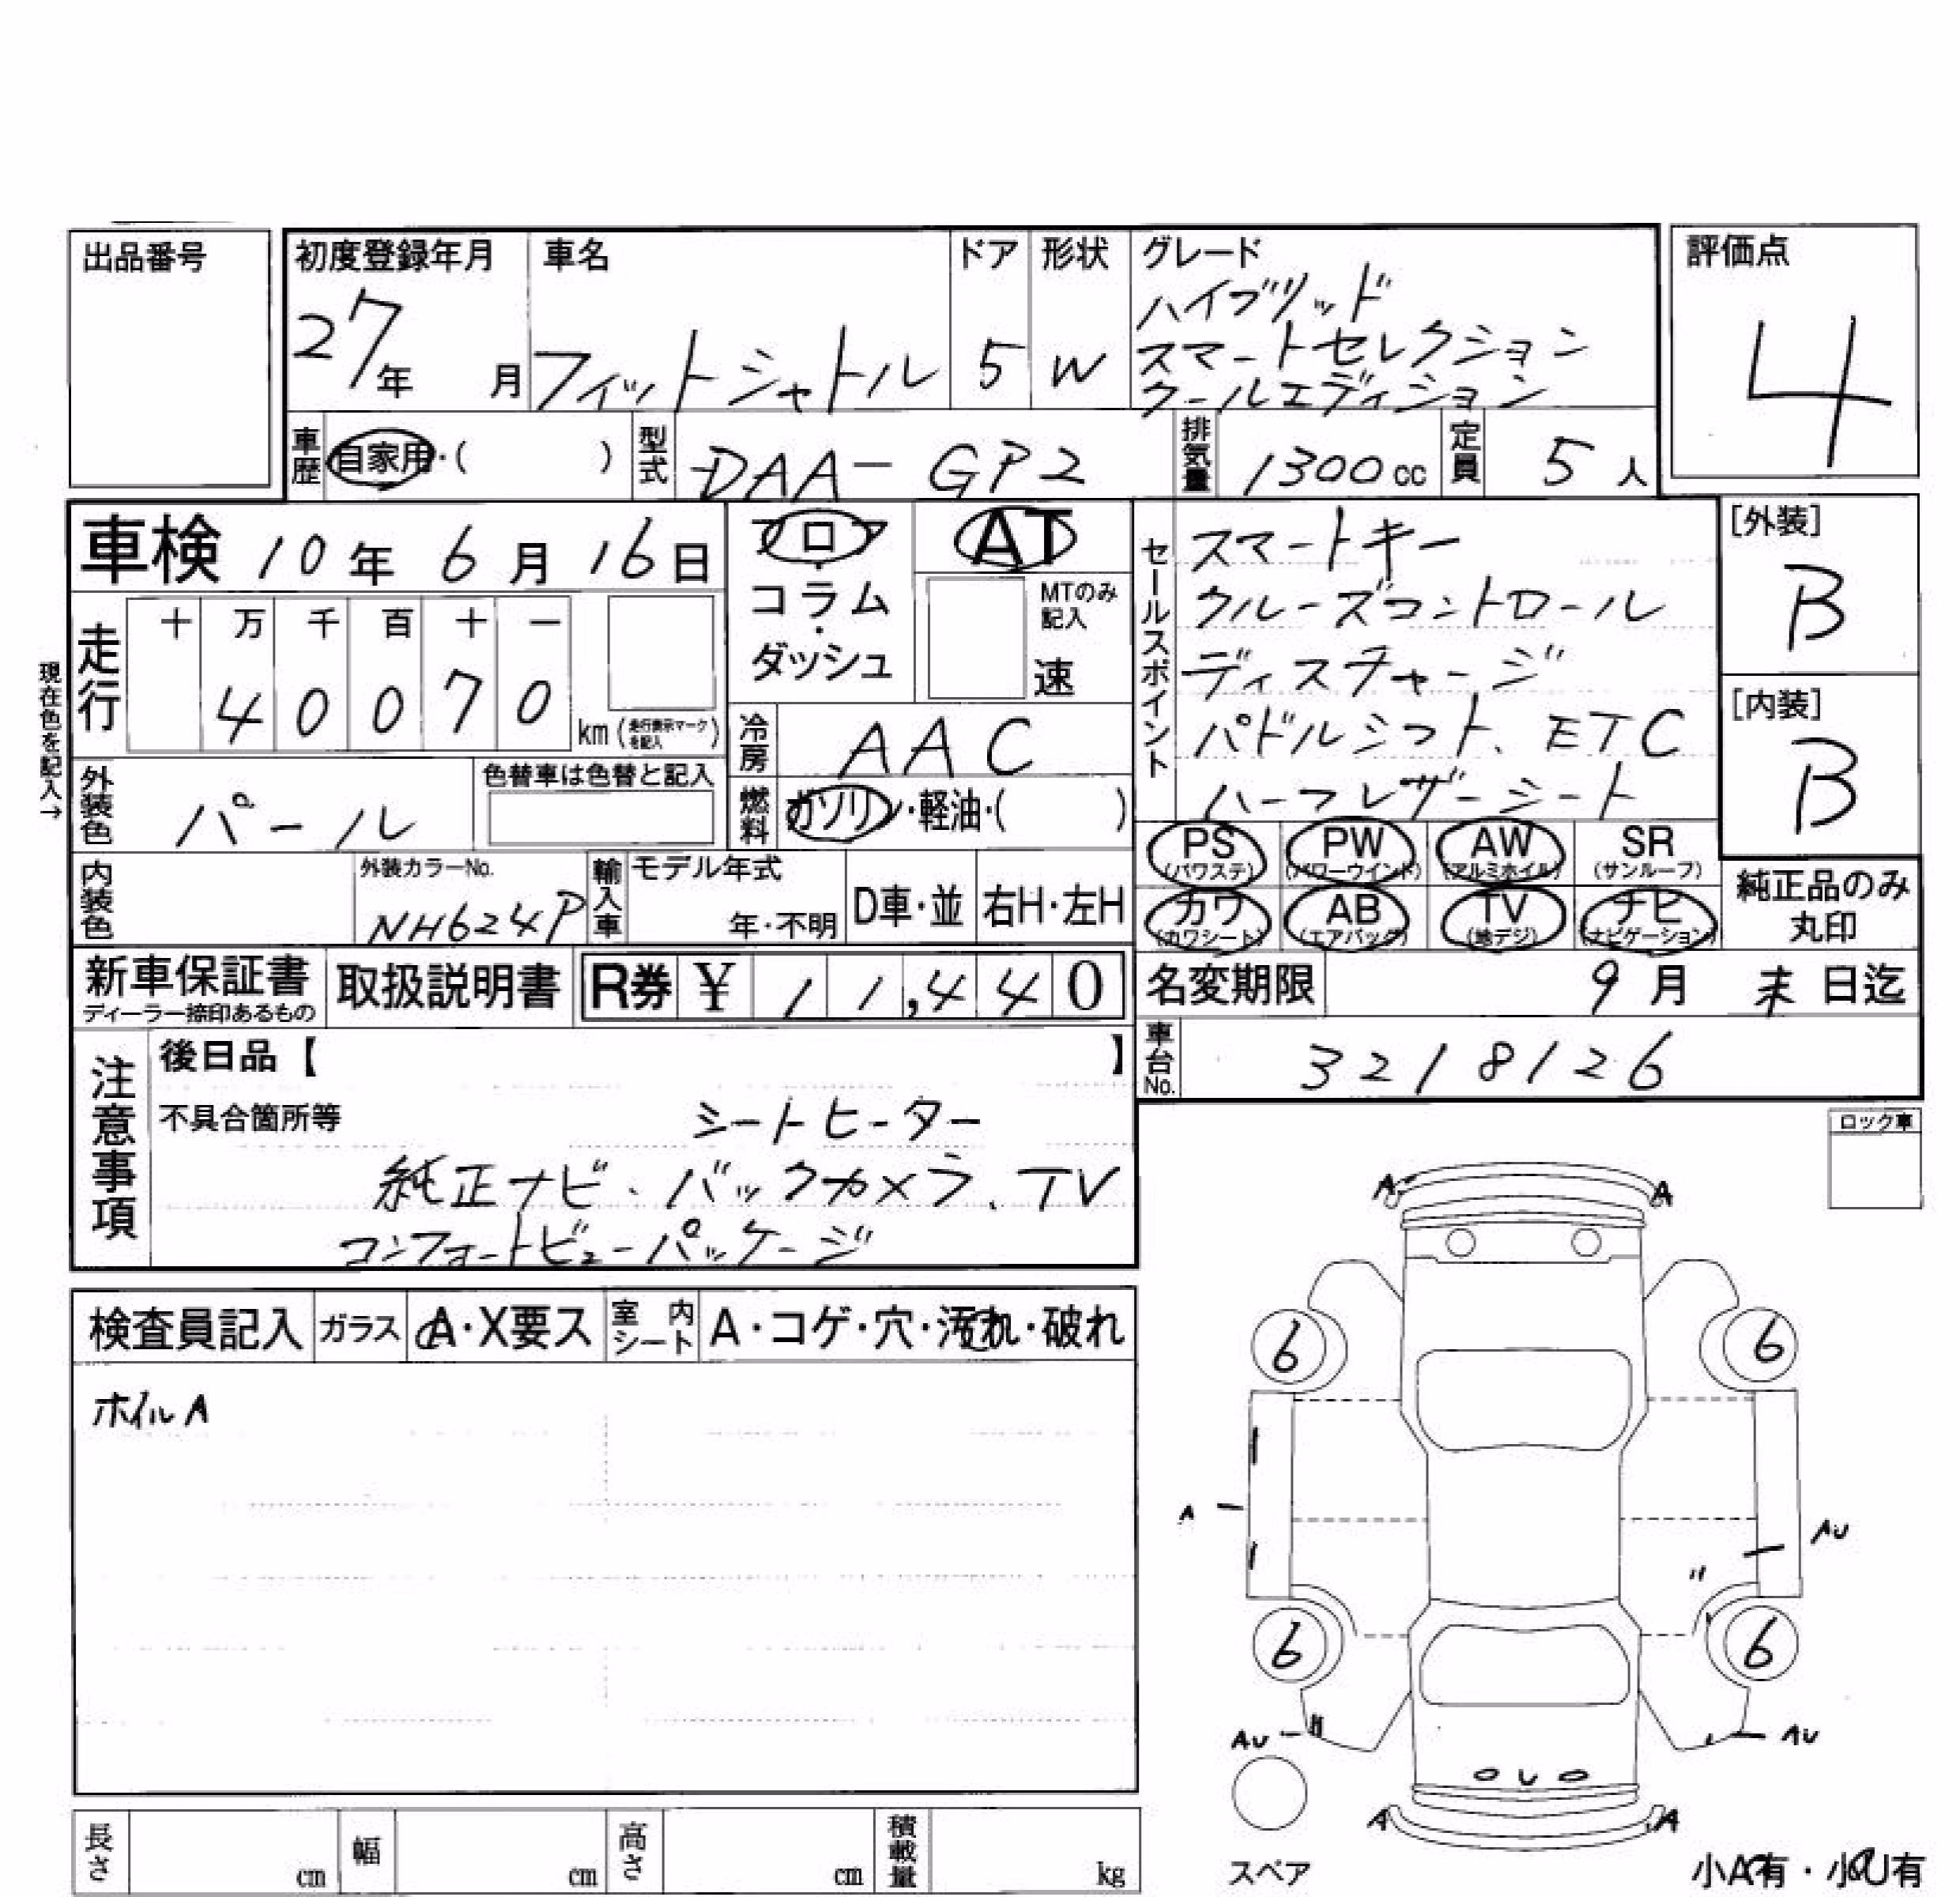 出品番号
初度登録年月 27年 月
車名 フィットシャトル
ドア 5
形状 W
グレード
ハイブリッド
スマートセレクション
クールエディション
評価点
4
車歴 自家用・( )
型式 DAA-GP2
排気量 1300cc
定員 5人
車検 10年 6月 16日
フロア・コラム・ダッシュ
AT
MTのみ記入
速
走行 十 万 千 百 十 一
4 0 0 7 0
km(走行表示マークを記入)
現在色を記入→
冷房 AAC
外装色 パール
色替車は色替と記入
燃料 ガソリン・軽油・( )
内装色
外装カラーNo.
NH624P
輸入車 モデル年式
年・不明
D車・並
右H・左H
セールスポイント
スマートキー
クルーズコントロール
ディスチャージ
パドルシフト、ETC
ハーフレザーシート
[外装]
B
[内装]
B
PS (パワステ)
PW (パワーウインド)
AW (アルミホイル)
SR (サンルーフ)
カワ (カワシート)
AB (エアバッグ)
TV (地デジ)
ナビ (ナビゲーション)
純正品のみ
丸印
新車保証書
ディーラー捺印あるもの
取扱説明書
R券 ¥ 11,440
名変期限 9月 末日迄
車台No. 3218126
注意事項
後日品【 】
不具合箇所等 シートヒーター
純正ナビ、バックカメラ、TV
コンフォートビューパッケージ
ロック車
検査員記入 ガラス A・X要ス 室内シート A・コゲ・穴・汚れ・破れ
ホイルA
A A
6 6
A AU
〃
6 6
AU AU
A A
スペア
小A有・小U有
長さ cm
幅 cm
高さ cm
積載量 kg